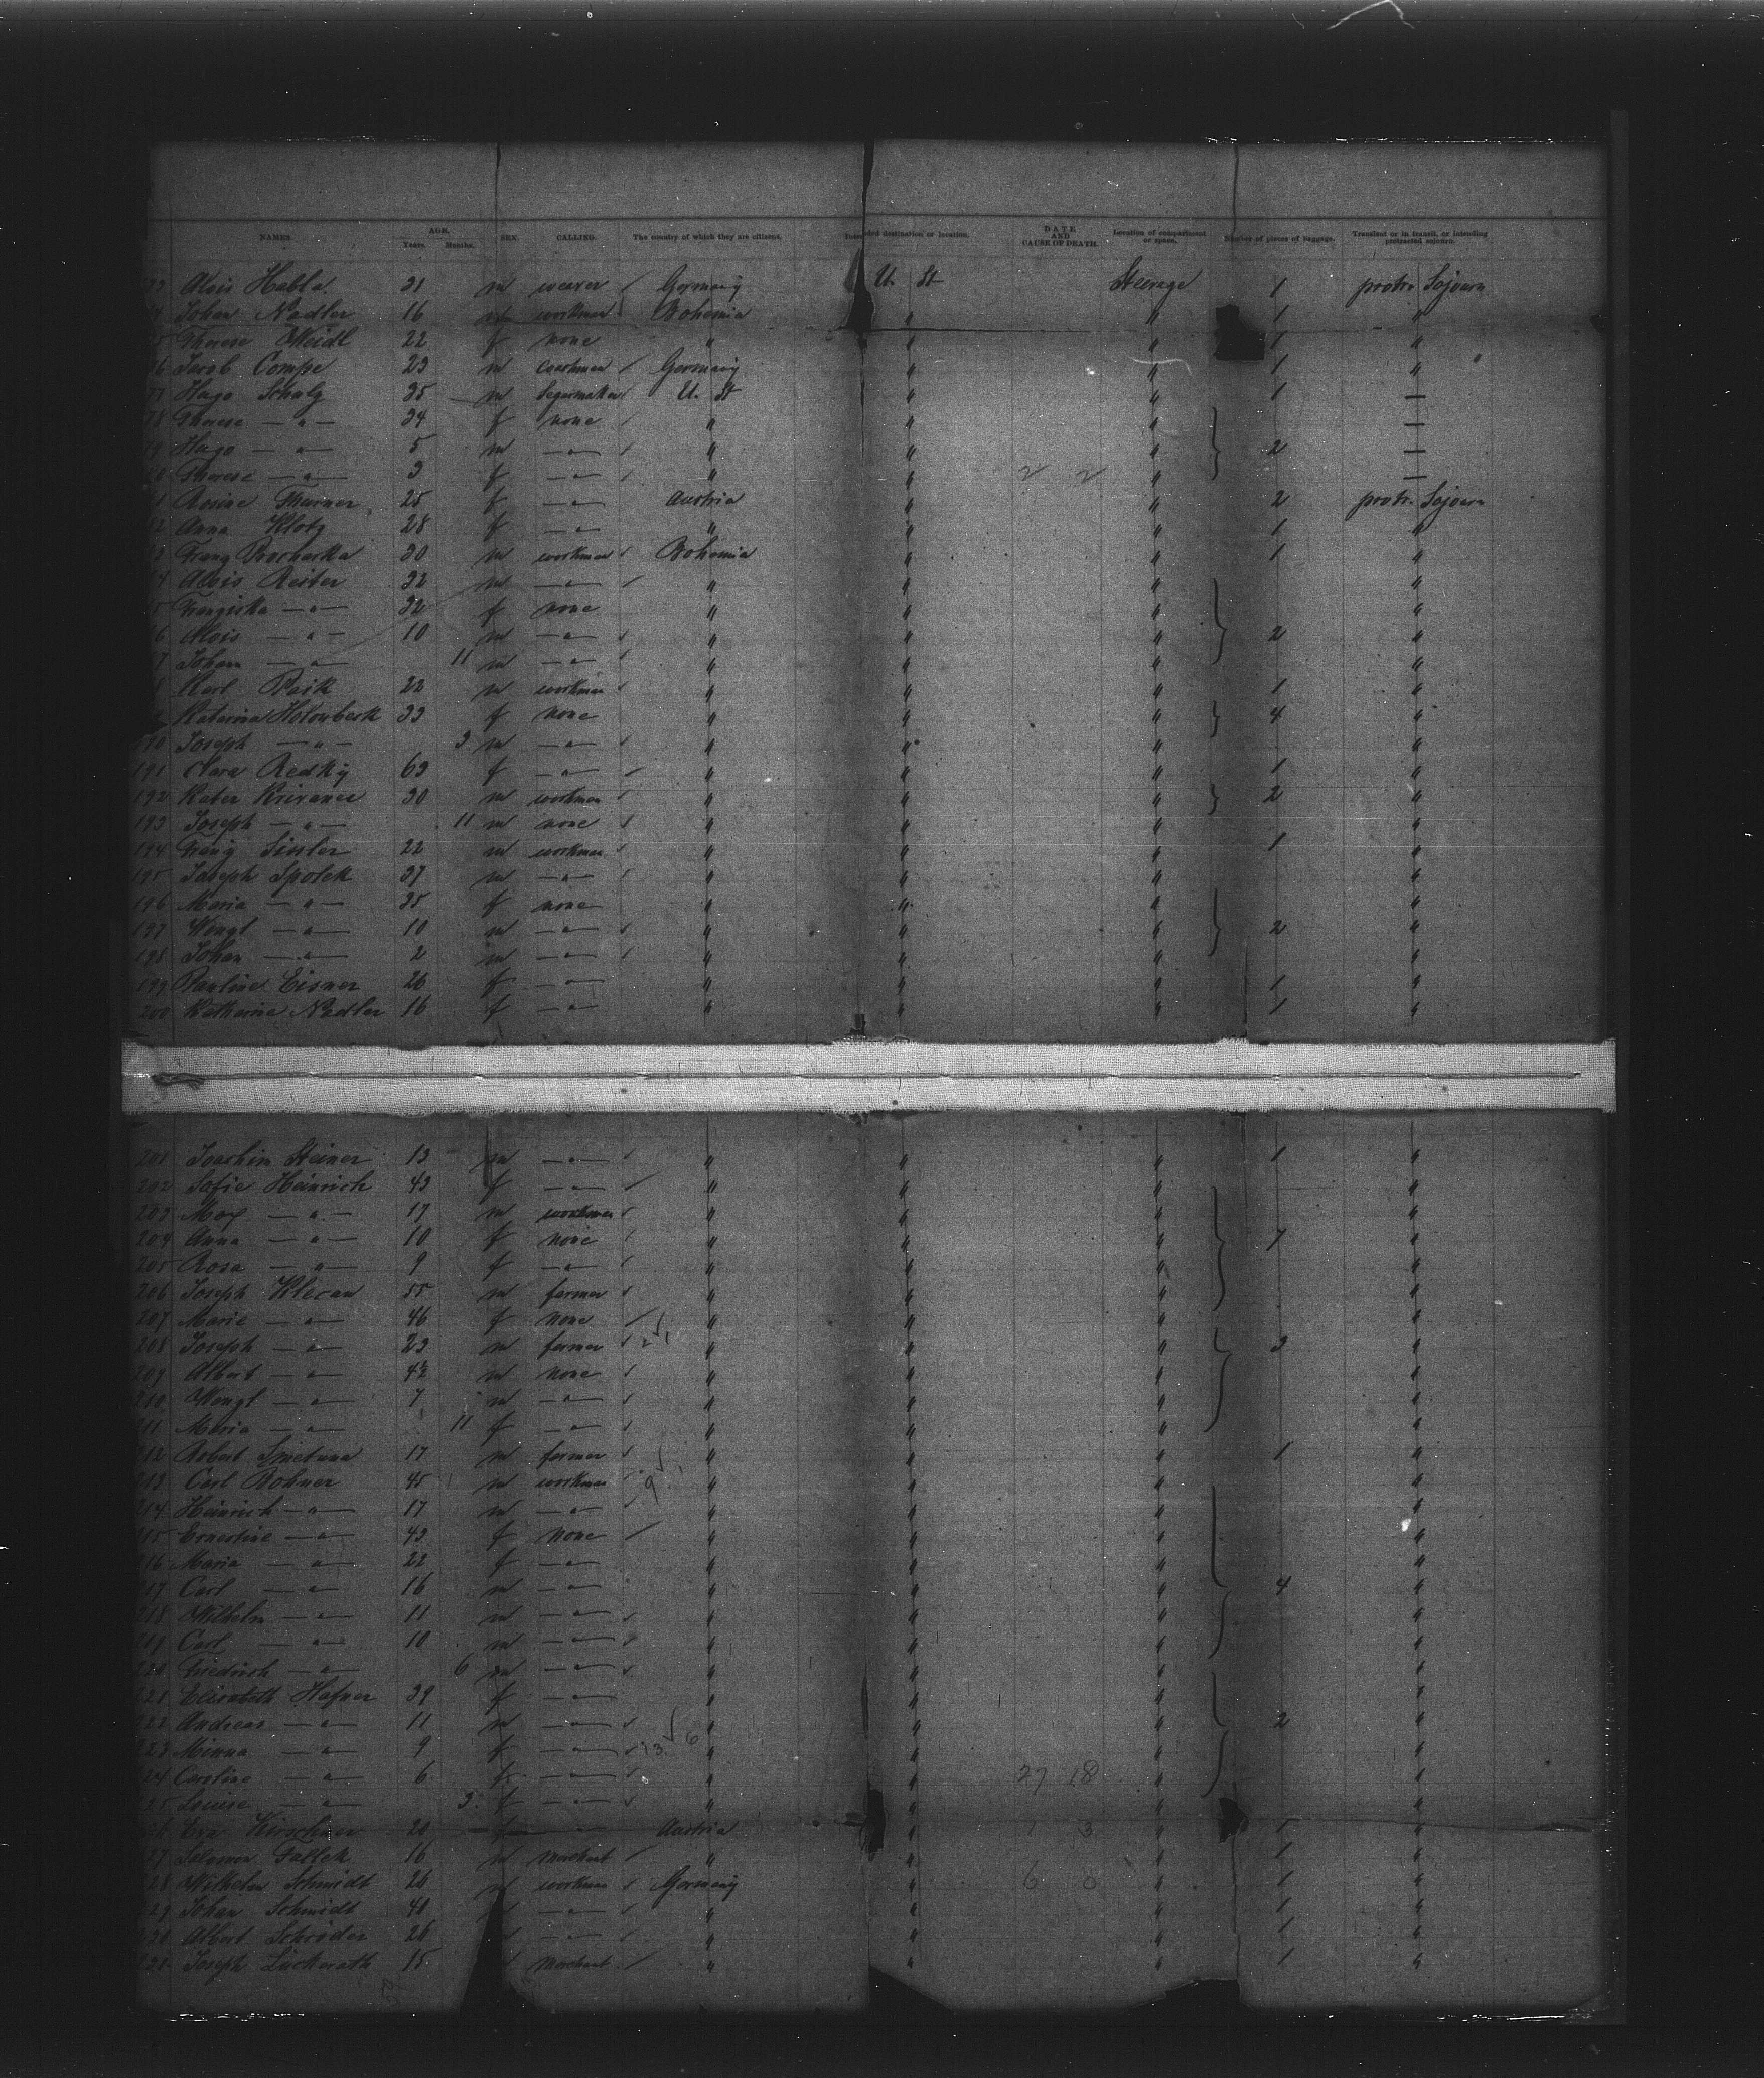 NAMES. AGE. Years. Months. SEX. CALLING. The country of which they are citizens. Intended destination or location. DATE AND CAUSE OF DEATH. Location of compartment or space. Number of pieces of baggage. Transient or in transit, or intending protracted sojourn.
Alois Habla 31 m weaver / Germany U. St Steerage 1 protr. Sojourn
Johan Nadler 16 m workman Bohemia " " 1 "
Therese Weidl 22 f none " " " 1 "
Jacob Compe 23 m coachman / Germany " " 1 "
Hugo Schulz 35 m Segarmaker / U. St " " 1 —
78 Therese — " — 34 f none / " " " —
Hugo — " — 5 m — " — / " " " 2 —
Therese — " — 3 f — " — / " " 2 2 " —
Rosine Thurner 25 f — " — Austria " " 2 protr. Sojourn
Anna Klotz 28 f — " — " " " 1 "
Franz Procharka 30 m workman / Bohemia " " 1 "
Alois Reiter 32 m — " — / " " " "
Franziska — " — 32 f none " " " "
Alois — " — 10 m — " — / " " " 2 "
Johan — " — 11 m — " — / " " " "
Karl Paik 22 m workman / " " " 1 "
Katerina Holoubeck 33 f none " " " 4 "
190 Joseph — " — 3 m — " — / " " " "
191 Clara Redky 63 f — " — / " " " 1 "
192 Kater Krivanec 30 m workman / " " " 2 "
193 Joseph — " — 11 m none / " " " "
194 Franz Sissler 22 m workman / " " " 1 "
195 Joseph Spolek 37 m — " — / " " " "
196 Maria — " — 35 f none " " " "
197 Wenzl — " — 10 m — " — / " " " 2 "
198 Johan — " — 2 m — " — / " " " "
199 Pauline Eisner 26 f — " — " " " 1 "
200 Katharine Nadler 16 f — " — " " " 1 "
201 Joachim Steiner 13 m — " — / " " " 1 "
202 Sofie Heinrich 43 f — " — / " " " "
203 Max — " — 17 m workman / " " " "
204 Anna — " — 10 f none / " " " 7 "
205 Rosa — " — 9 f — " — / " " " "
206 Joseph Klecan 55 m farmer / " " " "
207 Marie — " — 46 f none / " " " "
208 Joseph — " — 23 m farmer / " " " 3 "
209 Albert — " — m none / " " " "
210 Wenzl — " — 7 m — " — / " " " "
211 Maria — " — 11 f — " — / " " " "
212 Robert Smetana 17 m farmer / " " " 1 "
213 Carl Bohner 45 m workman / 9 " " "
214 Heinrich — " — 17 m — " — / " " " "
215 Ernestine — " — 43 f none / " " " "
216 Maria — " — 22 f — " — " " " "
217 Carl — " — 16 m — " — " " " 4 "
218 Wilhelm — " — 11 m — " — / " " " "
219 Carl — " — 10 m — " — / " " " "
220 Friedrich — " — 6 m — " — / " " " "
221 Elisabeth Hafner 39 f — " — " " " "
222 Andreas — " — 11 m — " — / " " " 2 "
223 Minna — " — 9 f — " — / 13 6 " " " "
224 Caroline — " — 6 f — " — / " " 27 18 " "
225 Louise — " — 3 f — " — / " " " "
Eva Kirschner 20 f — " — Austria " 1 3 " 1 "
27 Salomon Fallek 16 m Merchant / " " " 1 "
28 Wilhelm Schmidt 26 m workman / Germany " 6 0 " 1 "
29 Johan Schmidt 41 — " — / " " " 1 "
230 Albert Schröder 26 — " — / " " " 1 "
231 Joseph Lückerath 15 Merchant / " " " 1 "